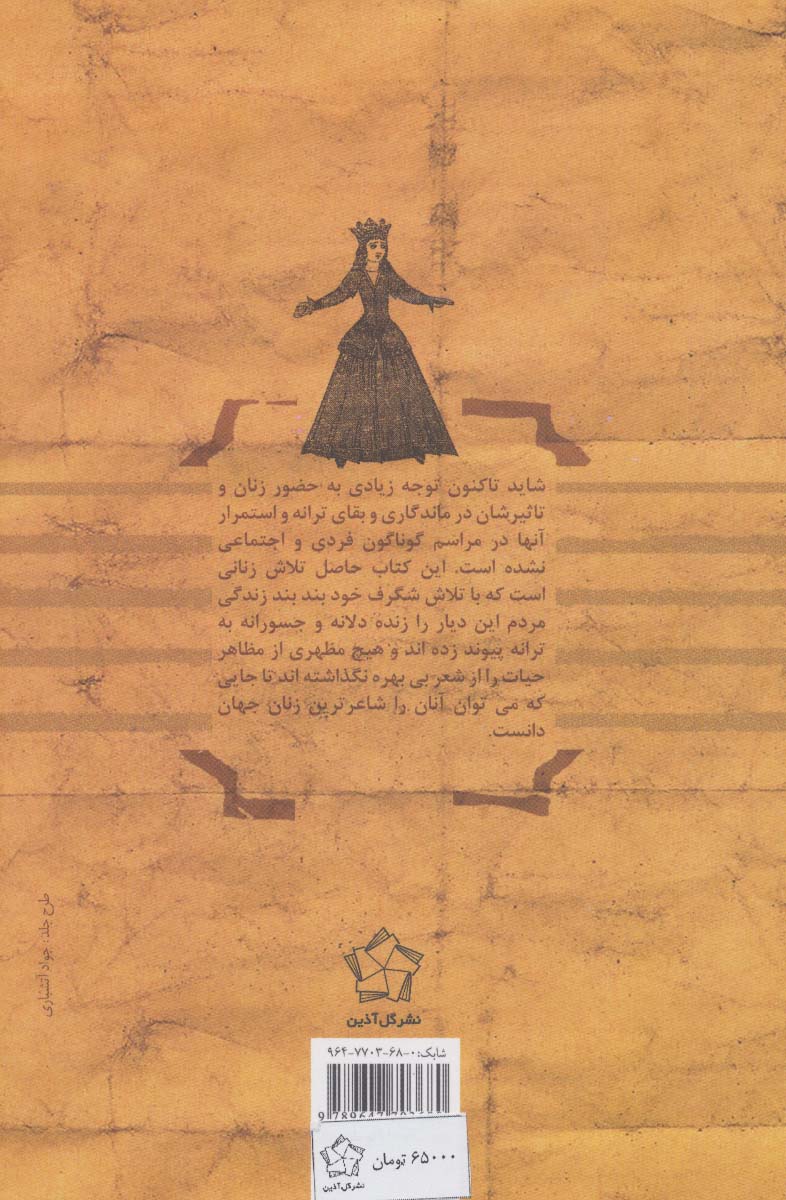 شاید تاکنون توجه زیادی به حضور زنان و
تاثیرشان در ماندگاری و بقای ترانه و استمرار
آنها در مراسم گوناگون فردی و اجتماعی
نشده است. این کتاب حاصل تلاش زنانی
است که با تلاش شگرف خود بند بند زندگی
مردم این دیار را زنده دلانه و جسورانه به
ترانه پیوند زده اند و هیچ مظهری از مظاهر
حیات را از شعر بی بهره نگذاشته اند تا جایی
که می توان آنان را شاعرترین زنان جهان
دانست.
طرح جلد: جواد آتشباری
نشر گل آذین
شابک: ۰-۶۸-۷۷۰۳-۹۶۴
۶۵۰۰۰ تومان
نشر گل آذین